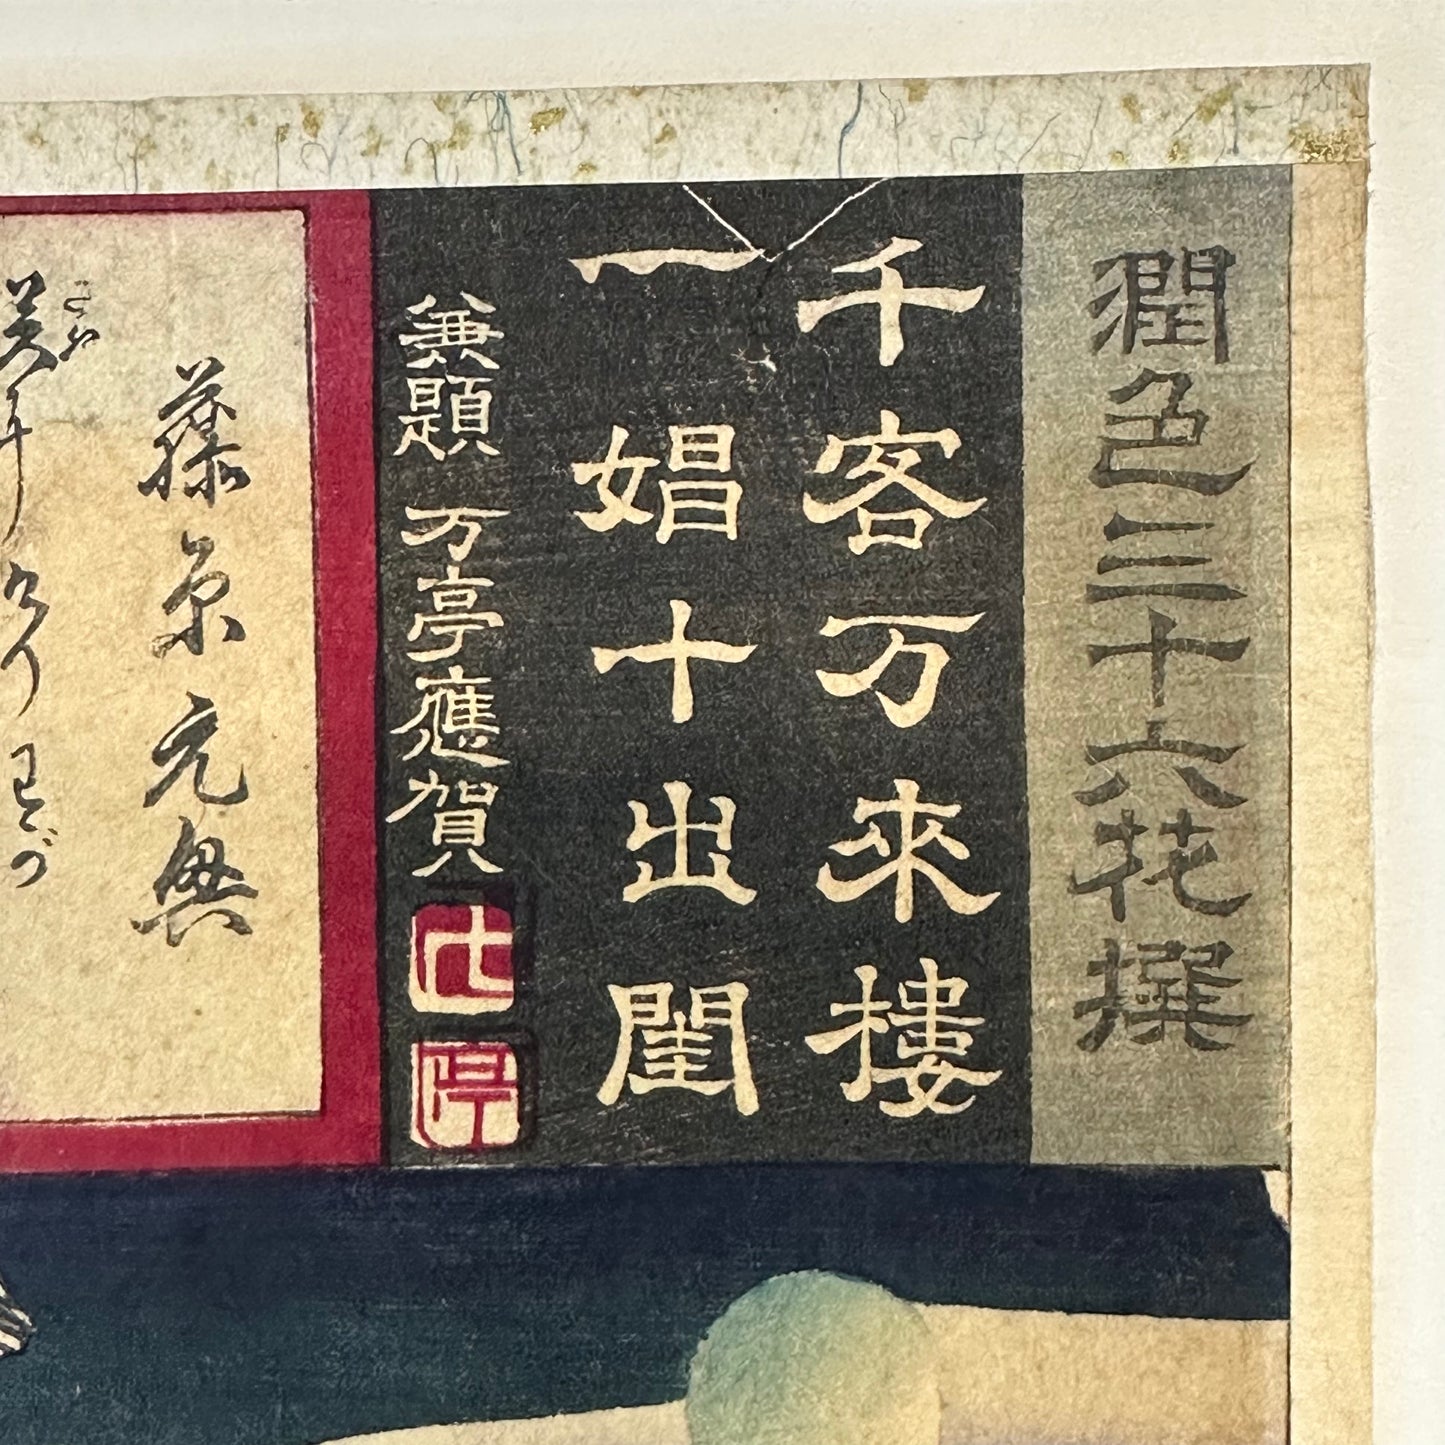 潤色三十六花撰
千客万來樓
一娼十出閨
兼題 万亭應賀
藤原元真